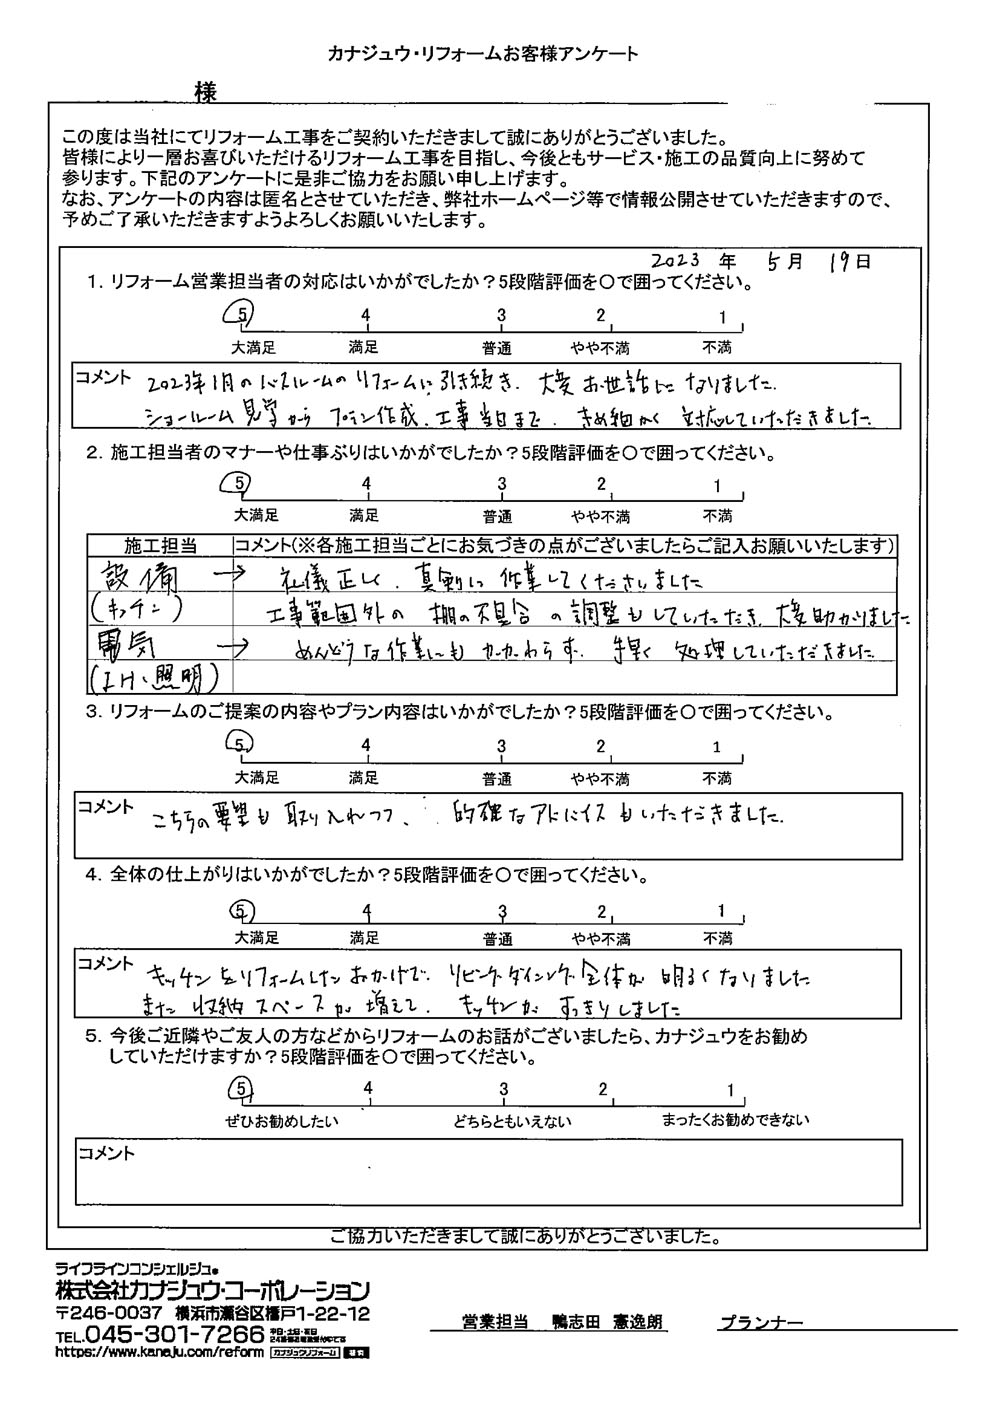 カナジュウ・リフォームお客様アンケート
様
この度は当社にてリフォーム工事をご契約いただきまして誠にありがとうございました。
皆様により一層お喜びいただけるリフォーム工事を目指し、今後ともサービス・施工の品質向上に努めて
参ります。下記のアンケートに是非ご協力をお願い申し上げます。
なお、アンケートの内容は匿名とさせていただき、弊社ホームページ等で情報公開させていただきますので、
予めご了承いただきますようよろしくお願いいたします。
2023 年 5月 19日
1. リフォーム営業担当者の対応はいかがでしたか？5段階評価を〇で囲ってください。
5 4 3 2 1
大満足 満足 普通 やや不満 不満
コメント 2023年1月のバスルームのリフォームに引き続き、大変お世話になりました。
ショールーム見学から プラン作成、工事当日まで、きめ細かく 対応していただきました
2. 施工担当者のマナーや仕事ぶりはいかがでしたか？5段階評価を〇で囲ってください。
5 4 3 2 1
大満足 満足 普通 やや不満 不満
施工担当 コメント(※各施工担当ごとにお気づきの点がございましたらご記入お願いいたします)
設備 → 礼儀正しく、真剣に 作業してくださいました
(キッチン) 工事範囲外の 棚の不具合の調整もしていただき、大変助かりました
電気 → めんどうな作業にもかかわらず、手早く 処理していただきました
(IH・照明)
3. リフォームのご提案の内容やプラン内容はいかがでしたか？5段階評価を〇で囲ってください。
5 4 3 2 1
大満足 満足 普通 やや不満 不満
コメント こちらの要望も取り入れつつ、的確なアドバイスもいただきました。
4. 全体の仕上がりはいかがでしたか？5段階評価を〇で囲ってください。
5 4 3 2 1
大満足 満足 普通 やや不満 不満
コメント キッチンをリフォームしたおかげで、リビングダイニング全体が 明るくなりました
また 収納スペースが増えて、キッチンが すっきりしました
5. 今後ご近隣やご友人の方などからリフォームのお話がございましたら、カナジュウをお勧め
していただけますか？5段階評価を〇で囲ってください。
5 4 3 2 1
ぜひお勧めしたい どちらともいえない まったくお勧めできない
コメント
ご協力いただきまして誠にありがとうございました。
ライフラインコンシェルジュ®
株式会社カナジュウ・コーポレーション
〒246-0037 横浜市瀬谷区橋戸1-22-12
TEL.045-301-7266
https://www.kanaju.com/reform カナジュウリフォーム 検索
営業担当 鴨志田 憲逸朗 プランナー